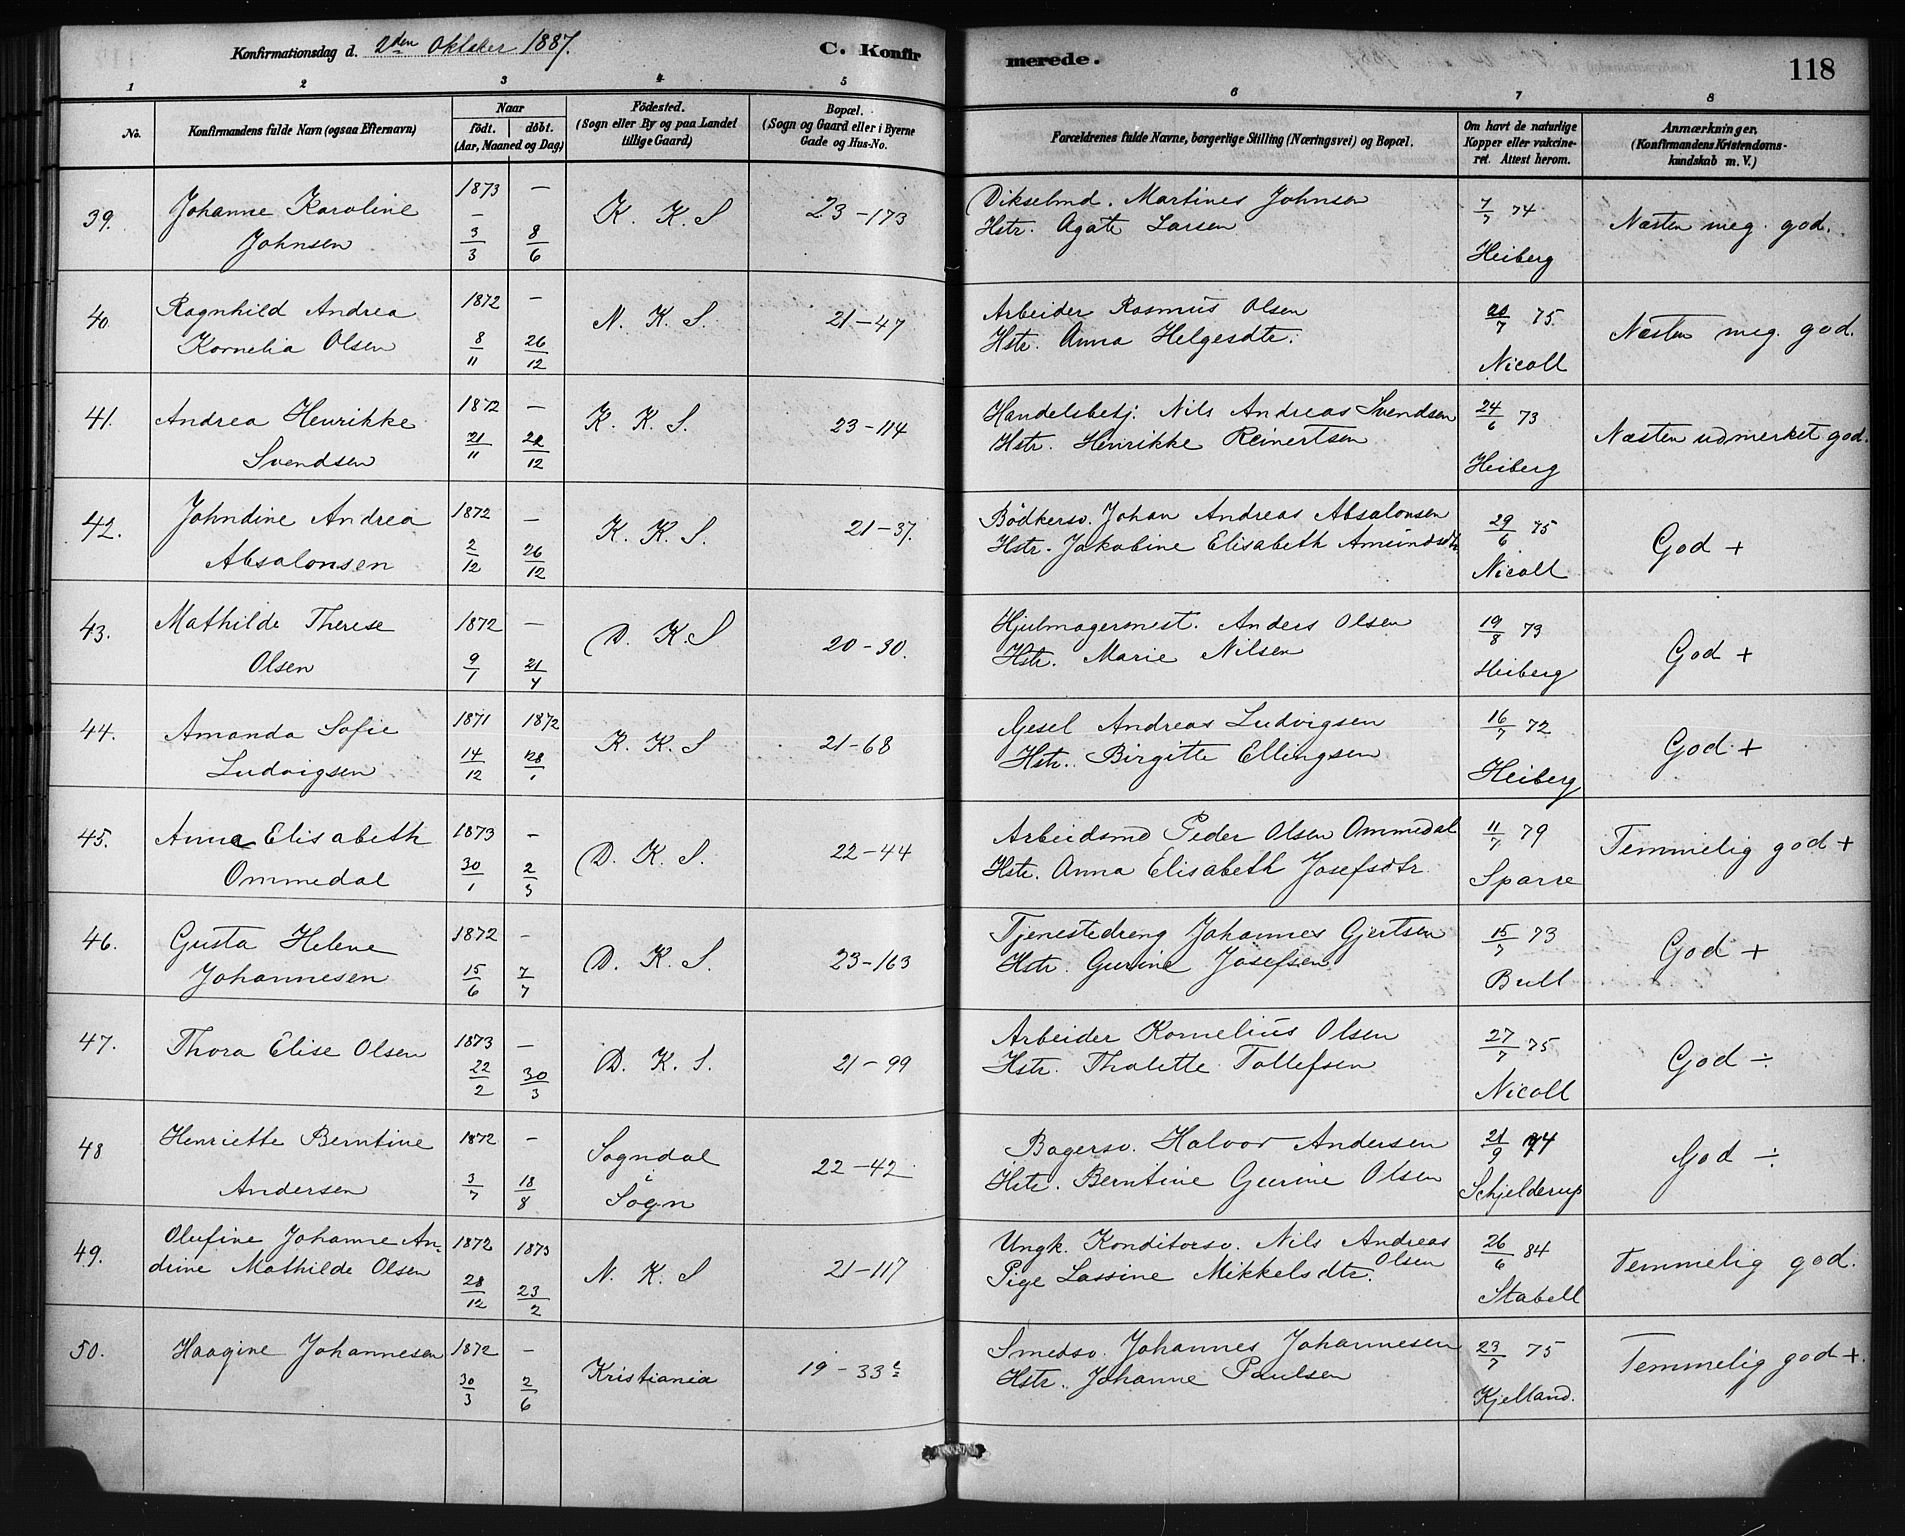 Konfirmationsdag d. 2den Oktober 1887.
C. Konfirmerede.
118
1 2 3 4 5 6 7 8
No.
Konfirmandens fulde Navn (ogsaa Efternavn)
Naar
födt. döbt.
(Aar, Maaned og Dag)
Födested.
(Sogn eller By og paa Landet
tillige Gaard)
Bopæl.
(Sogn og Gaard eller i Byerne
Gade og Hus-No.
Forældrenes fulde Navne, borgerlige Stilling (Næringsvei) og Bopæl.
Om havt de naturlige
Kopper eller vakcine-
ret. Attest herom.
Anmærkninger.
(Konfirmandens Kristendoms-
kundskab m. V.)
39. Johanne Karoline
Johnsen
1873 —
3/3 8/6
K. K. S
23-173
Dikselmd. Martines Johnsen
Hstr. Agate Larsen
7/7 74
Heiberg
Næsten meg. god.
40 Ragnhild Andrea
Kornelia Olsen
1872 —
8/11 26/12
N. K. S.
21-47
Arbeider Rasmus Olsen
Hstr. Anna Helgesdtr.
20/7 75.
Nicoll
Næsten meg. god.
41. Andrea Henrikke
Svendsen
1872 —
21/11 22/12
K. K. S.
23-114
Handelsbetj. Nils Andreas Svendsen
Hstr. Henrikke Reinertsen
24/6 73
Heiberg
Næsten udmerket god.
42. Johndine Andrea
Absalonsen
1872 —
2/12 26/12
K. K. S.
21-37.
Bödkersv. Johan Andreas Absalonsen
Hstr. Jakobine Elisabeth Amundsdtr
29/6 75
Nicoll
God +
43. Mathilde Therese
Olsen
1872 —
9/1 21/4
D. K. S
20-30.
Hjulmagermest. Anders Olsen
Hstr. Marie Nilsen
19/8 73
Heiberg
God +
44. Amanda Sofie
Ludvigsen
1871 1872
14/12 28/1
K. K. S
21-68
Gesel Andreas Ludvigsen
Hstr. Birgitte Ellingsen
16/7 72
Heiberg
God +
45. Anna Elisabeth
Ommedal
1873 —
30/1 2/3
D. K. S.
22-44
Arbeidsmd Peder Olsen Ommedal
Hstr. Anna Elisabeth Josefsdtr
11/7 79
Sparre
Temmelig god +
46. Gusta Helene
Johannesen
1872 —
15/6 7/7
D. K. S.
23-163
Tjenestedreng Johannes Gjertsen
Hstr. Gurine Josefsen
15/7 73
Bull
God +
47. Thora Elise Olsen
1873 —
22/2 30/3
D. K. S.
21-99
Arbeider Kornelius Olsen
Hstr. Thalette Tollefsen
27/7 75
Nicoll
God ÷
48 Henriette Berntine
Andersen
1872 —
3/7 18/8
Sogndal
i
Sogn
22-42
Bagersv. Halvor Andersen
Hstr. Berntine Gurine Olsen
21/9 74
Schjelderup
God ÷
49. Olufine Johanne An-
drine Mathilde Olsen
1872 1873
28/12 23/2
N. K. S
21-117
Ungk. Konditorsv. Nils Andreas
Olsen
Pige Lassine Mikkelsdtr.
26/6 84
Stabell
Temmelig god.
50. Haagine Johannesen
1872 —
30/3 2/6
Kristiania
19-33c
Smedsv. Johannes Johannesen
Hstr. Johanne Paulsen
23/7 75
Kjelland.
Temmelig god +.